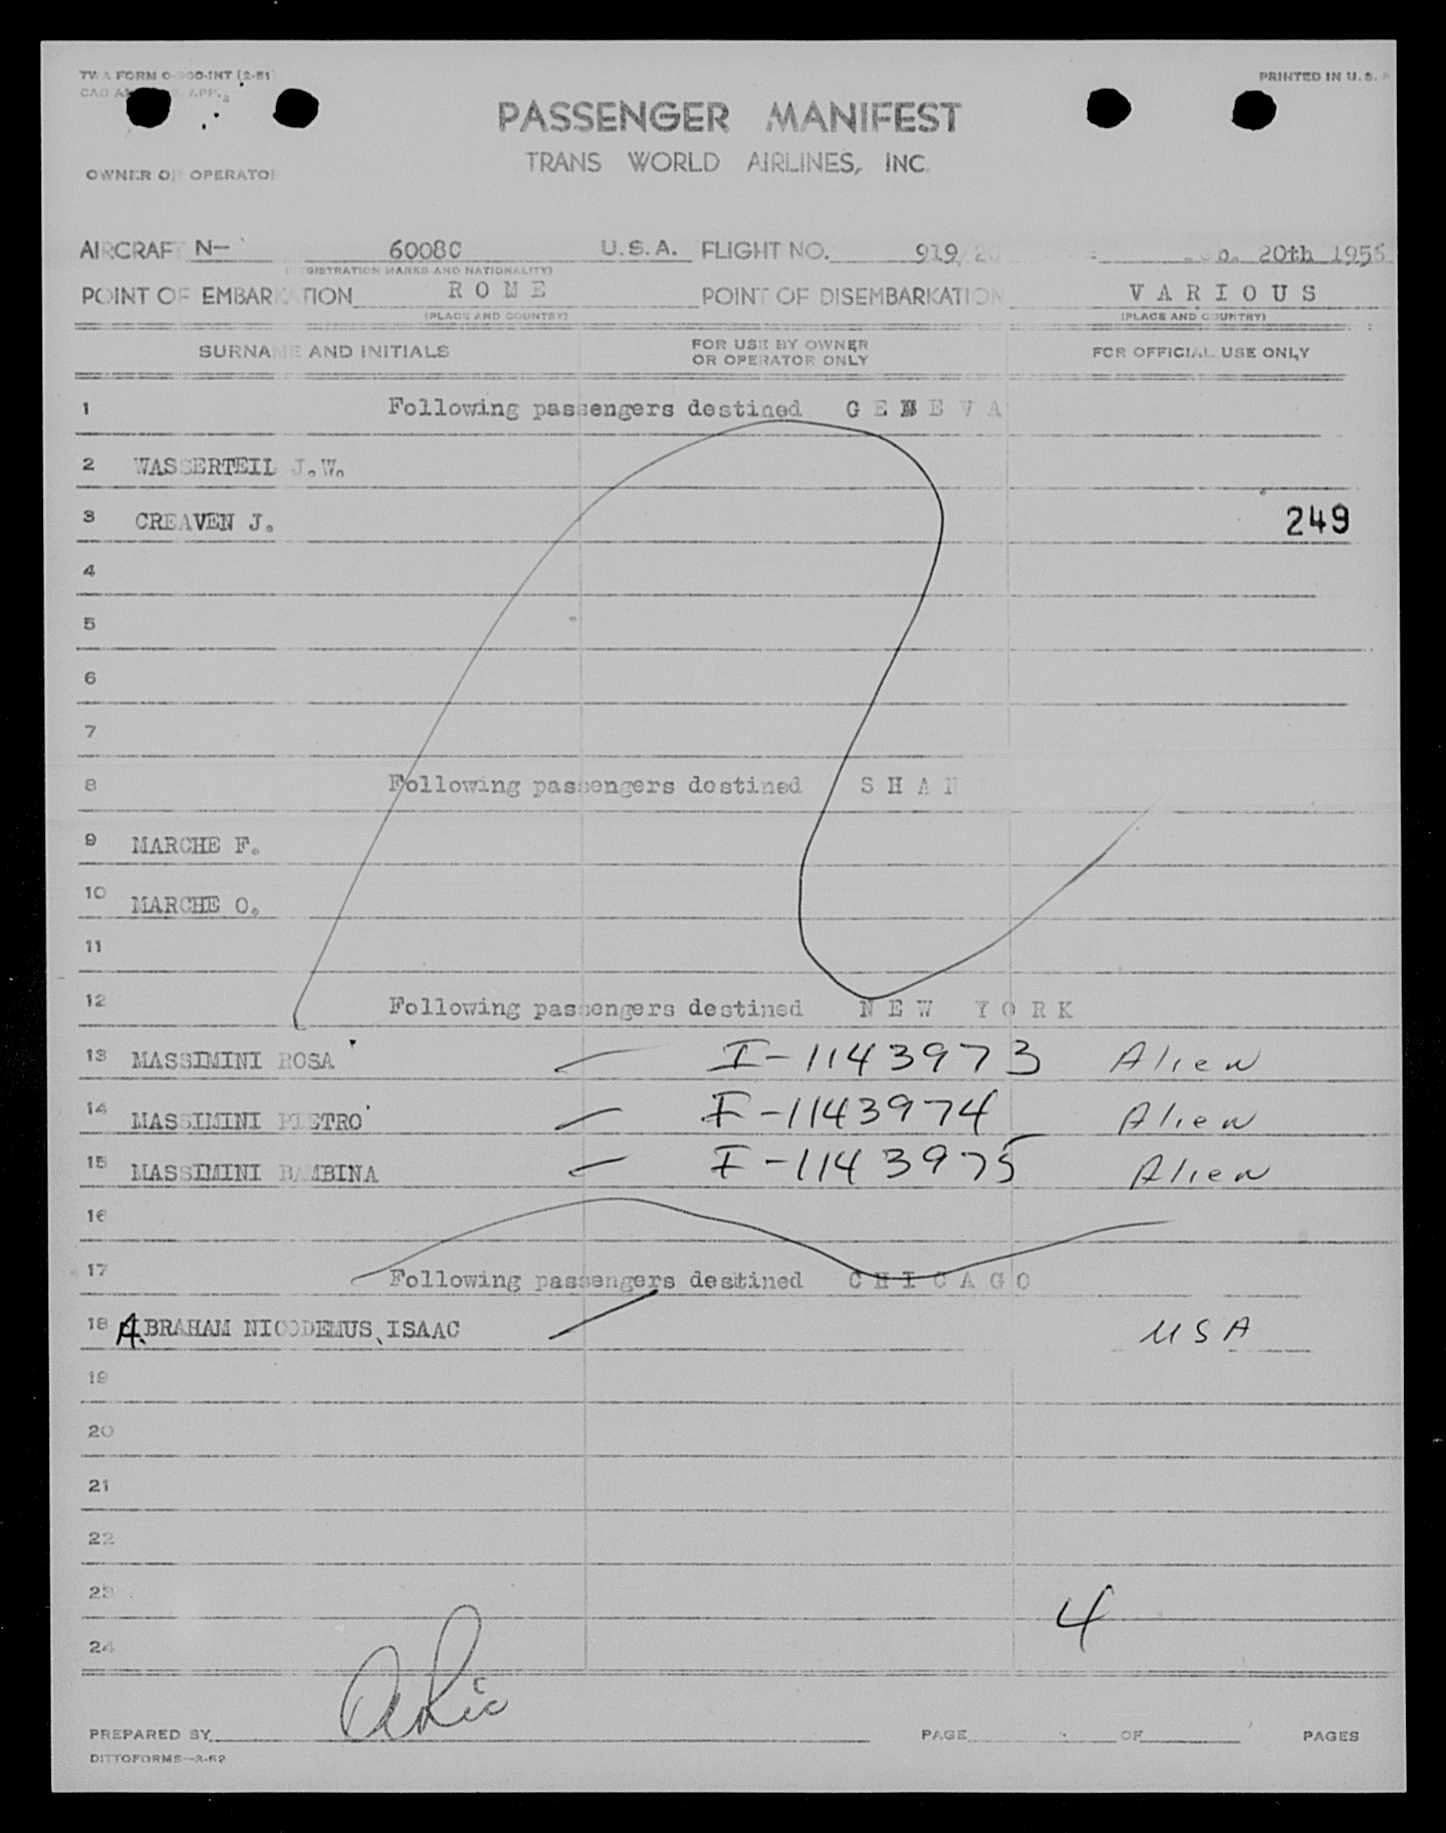 TWA FORM O- 00-INT (2-51
PRINTED IN U. S.
APP.
PASSENGER MANIFEST
TRANS WORLD AIRLINES, INC.
OWNER OR OPERATOR
AIRCRAFT N- 6008C U.S.A. FLIGHT NO. 919/20 20th 1955
(REGISTRATION MARKS AND NATIONALITY)
POINT OF EMBARKATION R O M E POINT OF DISEMBARKATION V A R I O U S
(PLACE AND COUNTRY) (PLACE AND COUNTRY)
SURNAME AND INITIALS FOR USE BY OWNER OR OPERATOR ONLY FOR OFFICIAL USE ONLY
1 Following passengers destined G E N E V A
2 WASSERTEIL J.W.
3 CREAVEN J. 249
4
5
6
7
8 Following passengers destined S H A N
9 MARCHE F.
10 MARCHE O.
11
12 Following passengers destined N E W Y O R K
13 MASSIMINI ROSA I-1143973 Alien
14 MASSIMINI PIETRO I-1143974 Alien
15 MASSIMINI BAMBINA I-1143975 Alien
16
17 Following passengers destined C H I C A G O
18 ABRAHAM NICODEMUS, ISAAC USA
19
20
21
22
23
24 4
PREPARED BY PAGE OF PAGES
DITTOFORMS—3-52